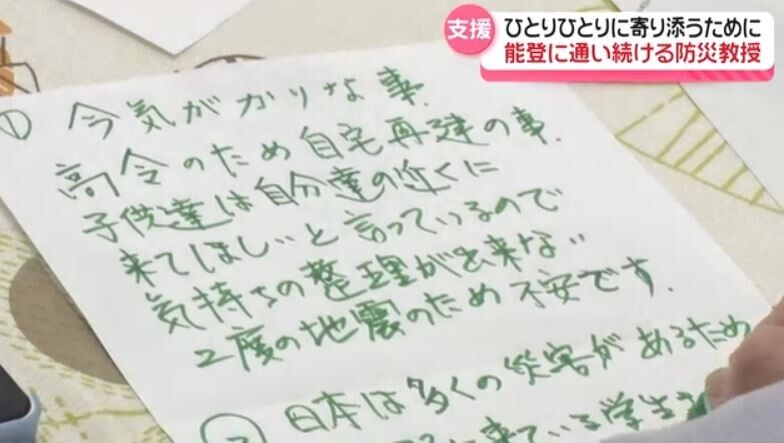 支援
ひとりひとりに寄り添うために
能登に通い続ける防災教授
① 今気がかりな事.
高令のため自宅再建の事.
子供達は自分達の近くに
来てほしいと言っているので
気持ちの整理が出来ない
2度の地震のため不安です.
② 日本は多くの災害があるため
に来ている学生